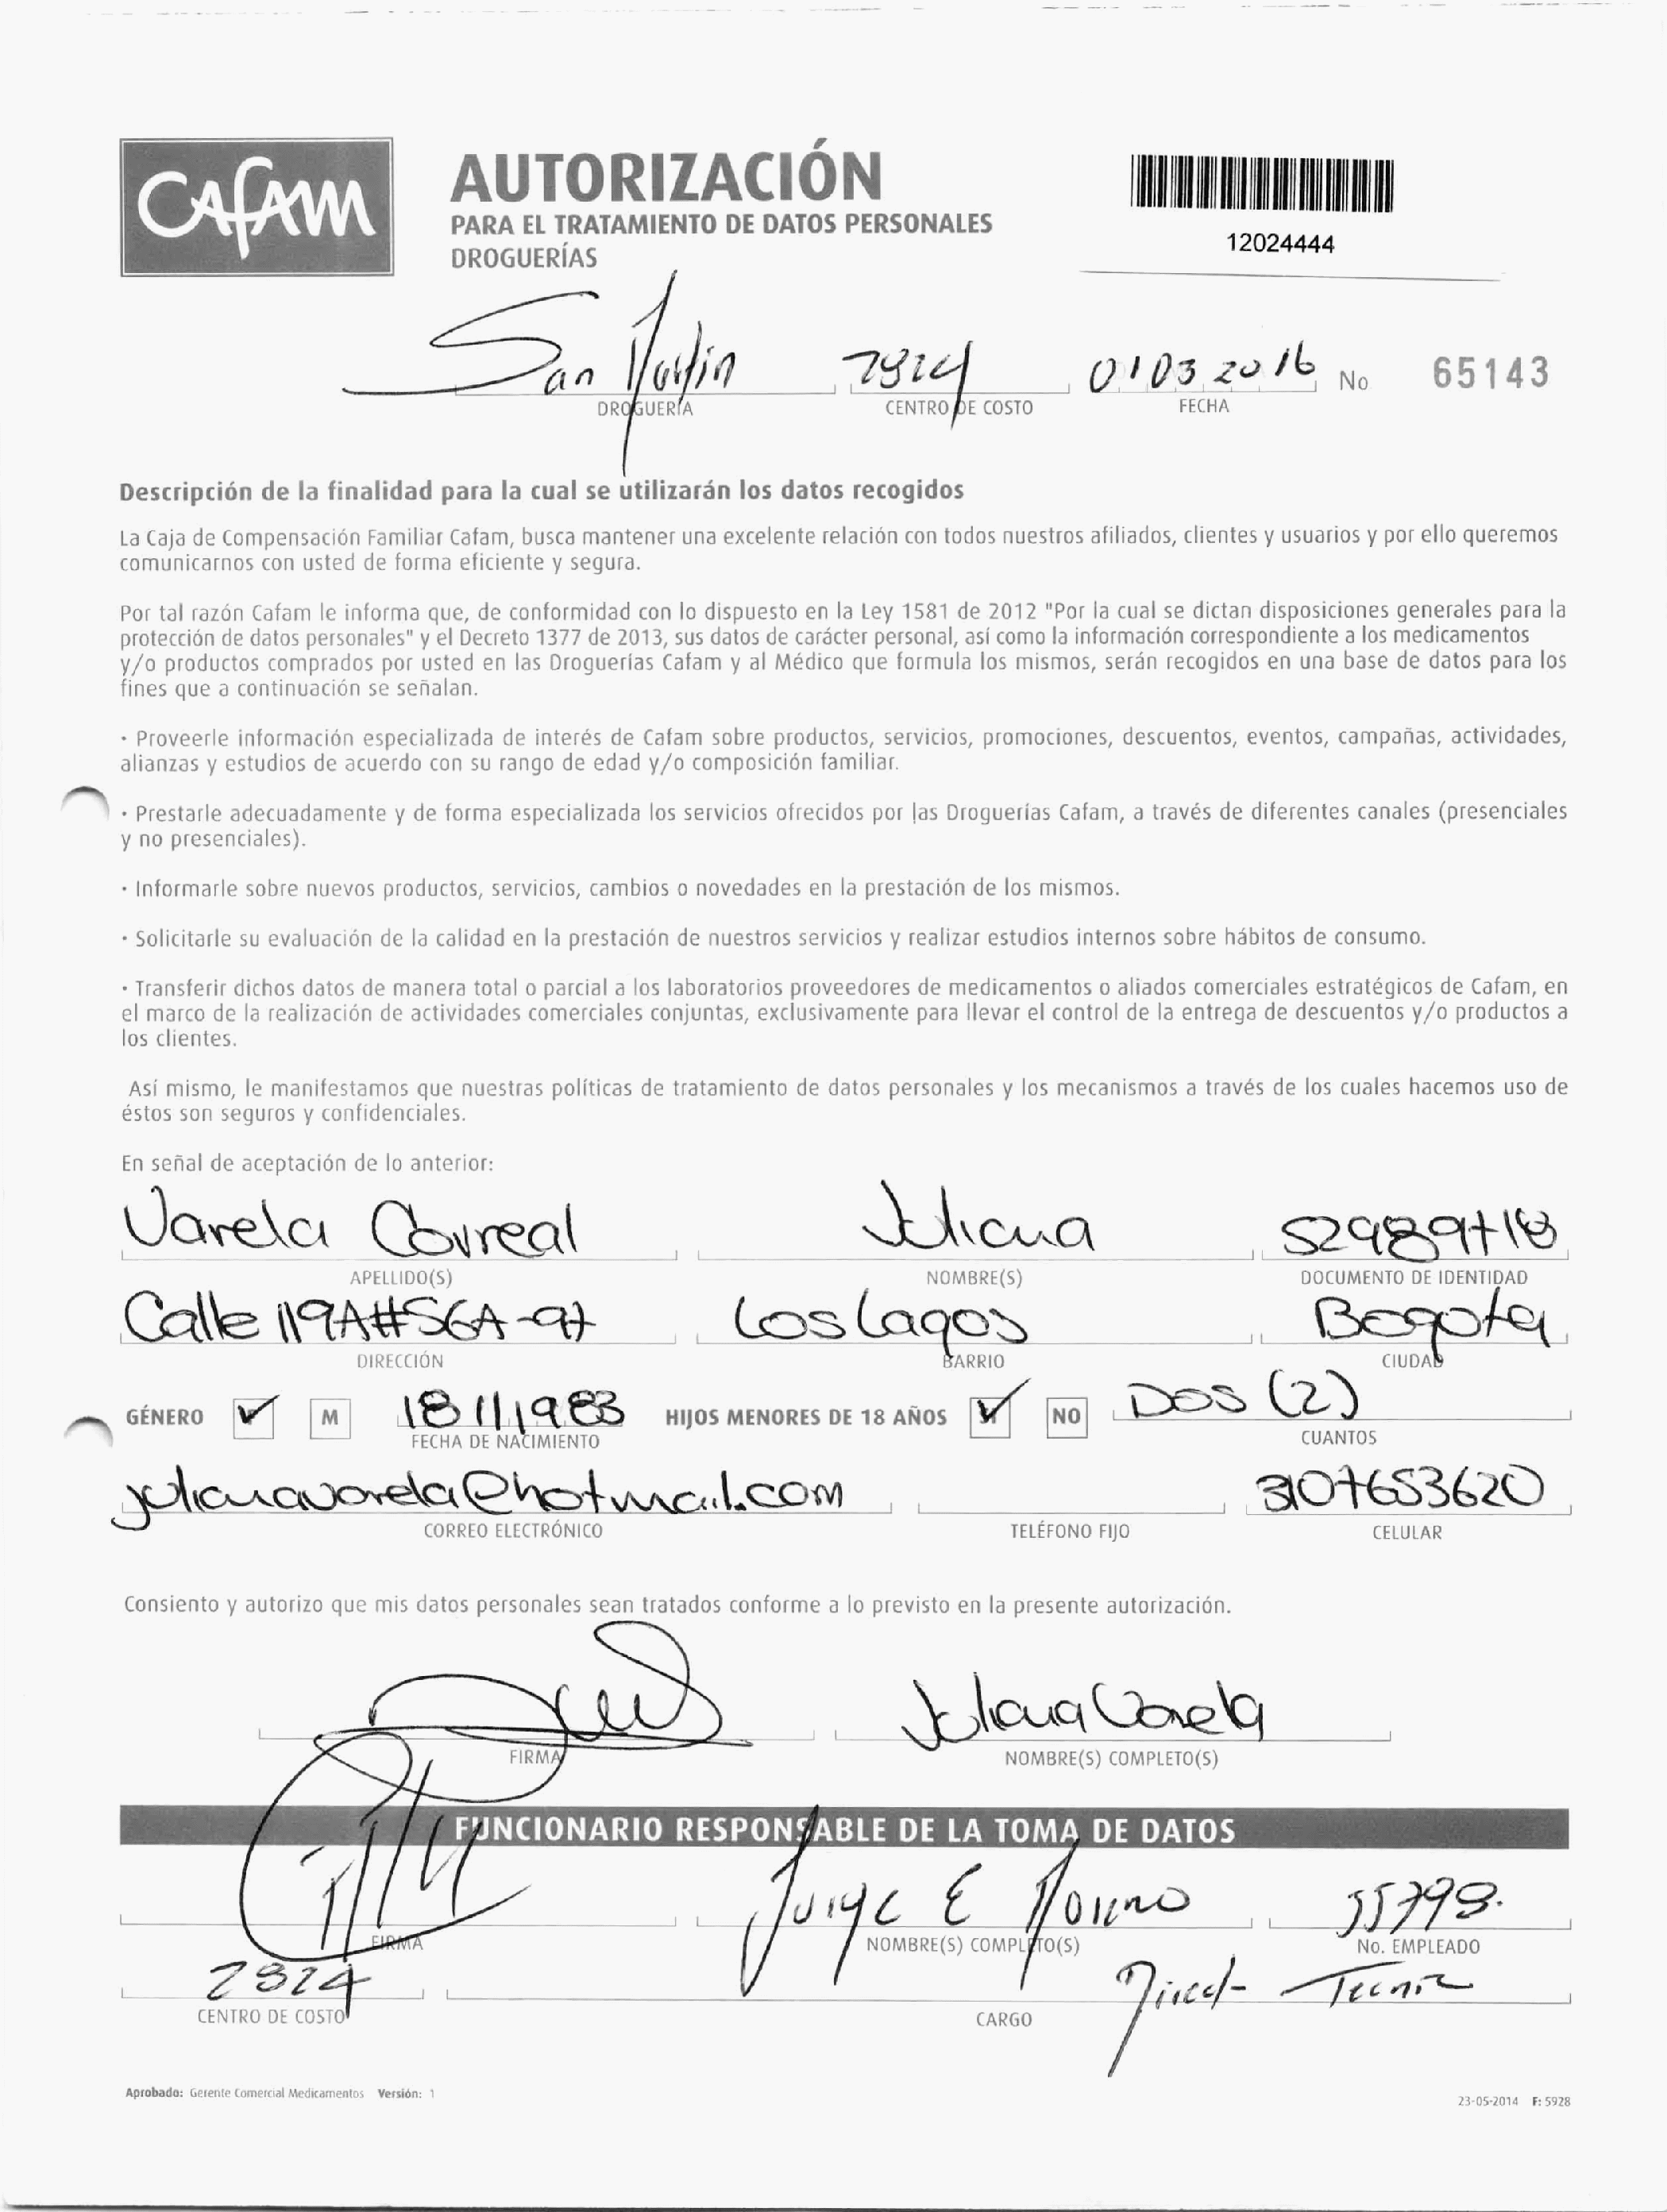 CAFAM
AUTORIZACIÓN
PARA EL TRATAMIENTO DE DATOS PERSONALES
DROGUERÍAS
12024444
San Martin 2824 01 03 2016 No 65143
DROGUERÍA CENTRO DE COSTO FECHA
Descripción de la finalidad para la cual se utilizarán los datos recogidos
La Caja de Compensación Familiar Cafam, busca mantener una excelente relación con todos nuestros afiliados, clientes y usuarios y por ello queremos
comunicarnos con usted de forma eficiente y segura.
Por tal razón Cafam le informa que, de conformidad con lo dispuesto en la Ley 1581 de 2012 "Por la cual se dictan disposiciones generales para la
protección de datos personales" y el Decreto 1377 de 2013, sus datos de carácter personal, así como la información correspondiente a los medicamentos
y/o productos comprados por usted en las Droguerías Cafam y al Médico que formula los mismos, serán recogidos en una base de datos para los
fines que a continuación se señalan.
· Proveerle información especializada de interés de Cafam sobre productos, servicios, promociones, descuentos, eventos, campañas, actividades,
alianzas y estudios de acuerdo con su rango de edad y/o composición familiar.
· Prestarle adecuadamente y de forma especializada los servicios ofrecidos por las Droguerías Cafam, a través de diferentes canales (presenciales
y no presenciales).
· Informarle sobre nuevos productos, servicios, cambios o novedades en la prestación de los mismos.
· Solicitarle su evaluación de la calidad en la prestación de nuestros servicios y realizar estudios internos sobre hábitos de consumo.
· Transferir dichos datos de manera total o parcial a los laboratorios proveedores de medicamentos o aliados comerciales estratégicos de Cafam, en
el marco de la realización de actividades comerciales conjuntas, exclusivamente para llevar el control de la entrega de descuentos y/o productos a
los clientes.
Así mismo, le manifestamos que nuestras políticas de tratamiento de datos personales y los mecanismos a través de los cuales hacemos uso de
éstos son seguros y confidenciales.
En señal de aceptación de lo anterior:
Varela Correal Juliana 52989718
APELLIDO(S) NOMBRE(S) DOCUMENTO DE IDENTIDAD
Calle 119A#56A-97 Los Lagos Bogota
DIRECCIÓN BARRIO CIUDAD
GÉNERO M 18 11 1983 HIJOS MENORES DE 18 AÑOS SI NO Dos (2)
FECHA DE NACIMIENTO CUANTOS
julianavarela@hotmail.com 3107653620
CORREO ELECTRÓNICO TELÉFONO FIJO CELULAR
Consiento y autorizo que mis datos personales sean tratados conforme a lo previsto en la presente autorización.
Juliana Varela
FIRMA NOMBRE(S) COMPLETO(S)
FUNCIONARIO RESPONSABLE DE LA TOMA DE DATOS
Jorge E Moreno 35798.
FIRMA NOMBRE(S) COMPLETO(S) No. EMPLEADO
2824 Direct- Tecnic
CENTRO DE COSTO CARGO
Aprobado: Gerente Comercial Medicamentos Versión: 1
23-05-2014 F: 5928